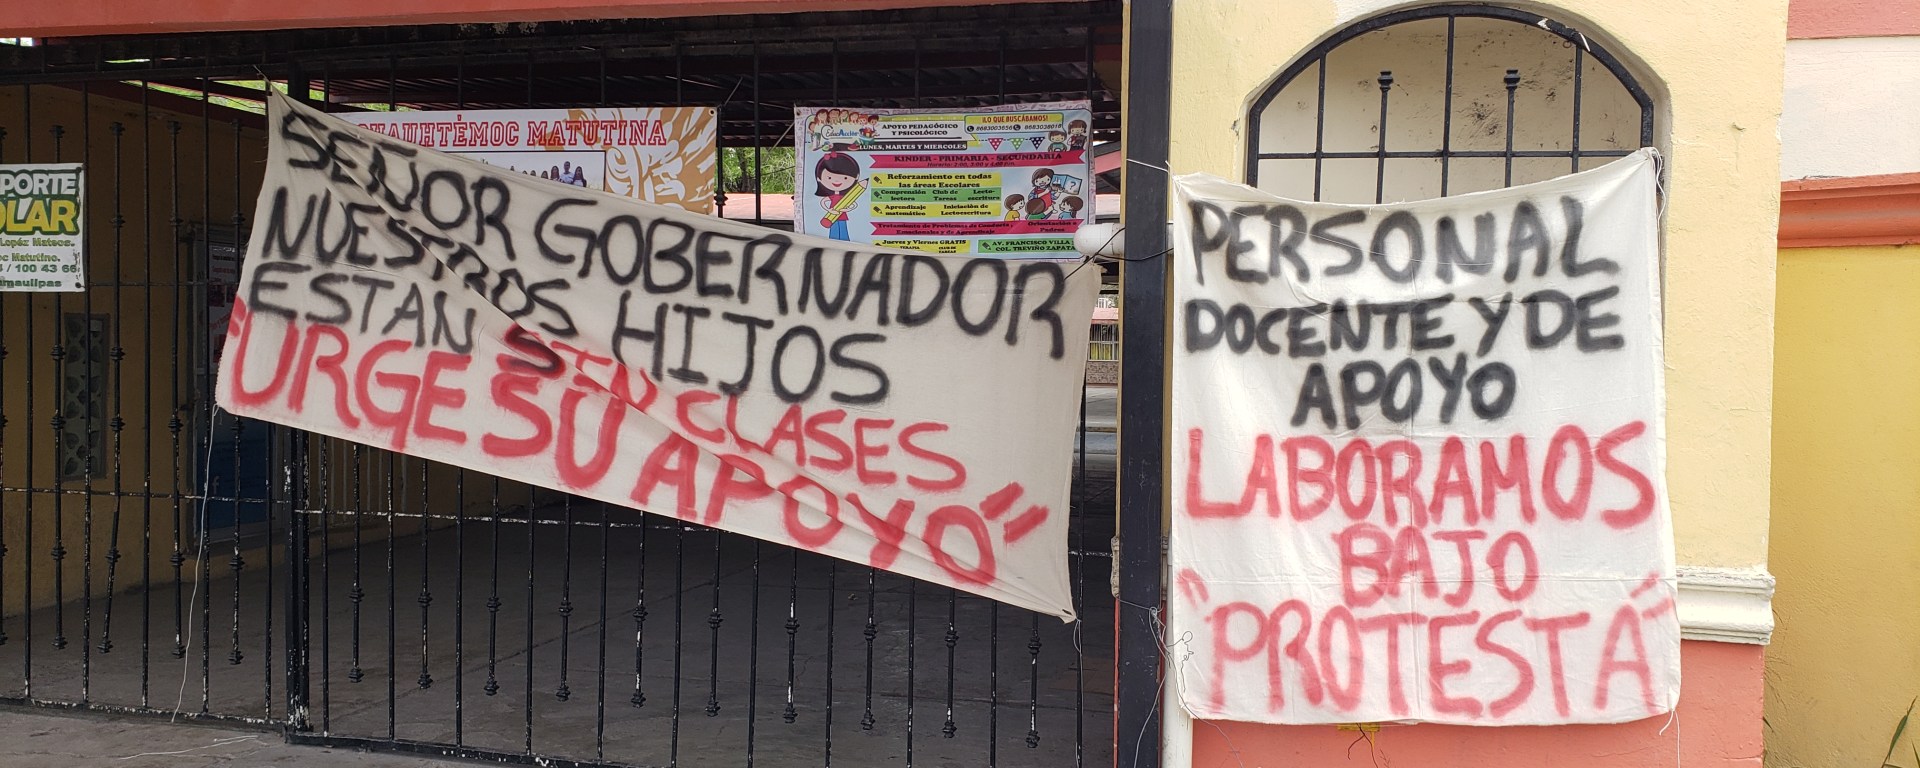 PORTE
OLAR
López Mateos.
oc Matutino.
/ 100 43 66
amaulipas
CUAUHTÉMOC MATUTINA
EducAcción
APOYO PEDAGÓGICO
Y PSICOLÓGICO
¡LO QUE BUSCÁBAMOS!
LUNES, MARTES Y MIERCOLES
KINDER - PRIMARIA - SECUNDARIA
Reforzamiento en todas
las áreas Escolares
Comprensión lectora
Club de Tareas
Lecto-escritura
Aprendizaje matemático
Iniciación de Lectoescritura
Tratamiento de Problemas de Conducta,
Emocionales y de Aprendizaje
Orientación a Padres
Jueves y Viernes GRATIS
AV. FRANCISCO VILLA
COL. TREVIÑO ZAPATA
SEÑOR GOBERNADOR
NUESTROS HIJOS
ESTAN SIN CLASES
"URGE SU APOYO"
PERSONAL
DOCENTE Y DE
APOYO
LABORAMOS
BAJO
"PROTESTA"